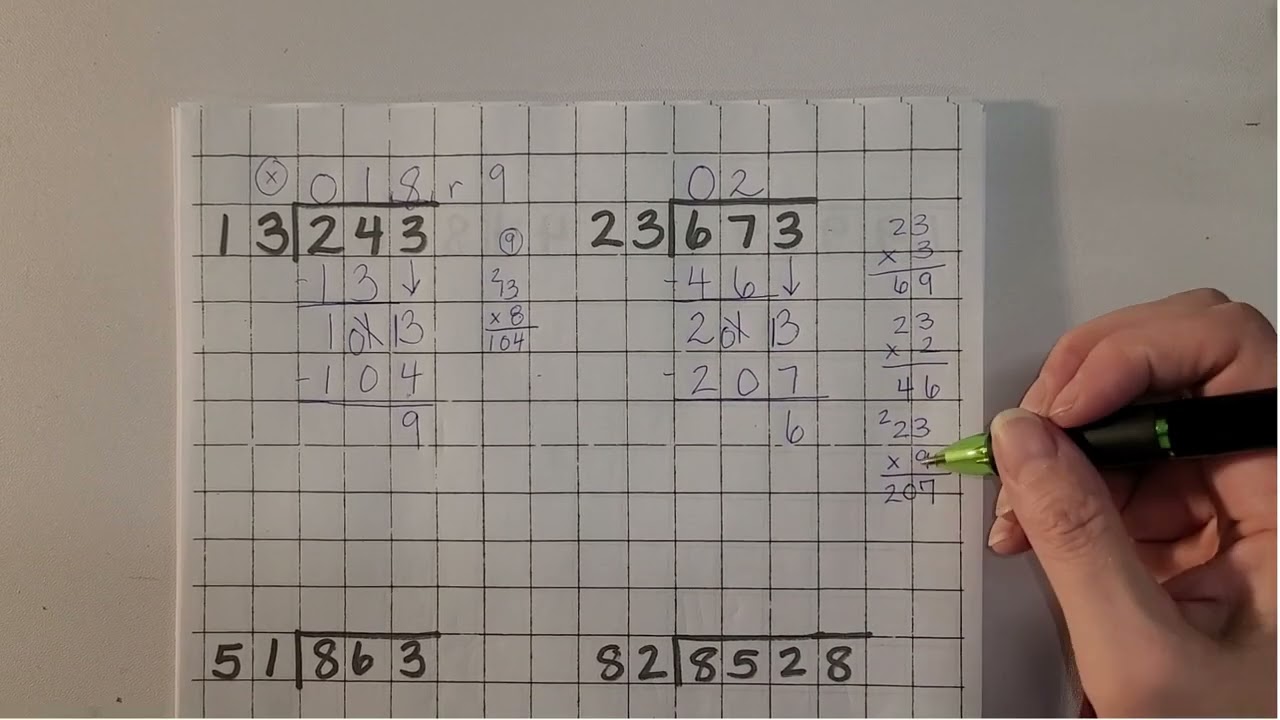 x 0 1 8 r 9
13 243
9
- 1 3 ↓
1 0 13
- 1 0 4
9
23
x 8
104
0 2
23 673
- 4 6 ↓
2 0 13
- 2 0 7
6
23
x 3
69
23
x 2
46
2 23
x 9
207
51 863
82 8528